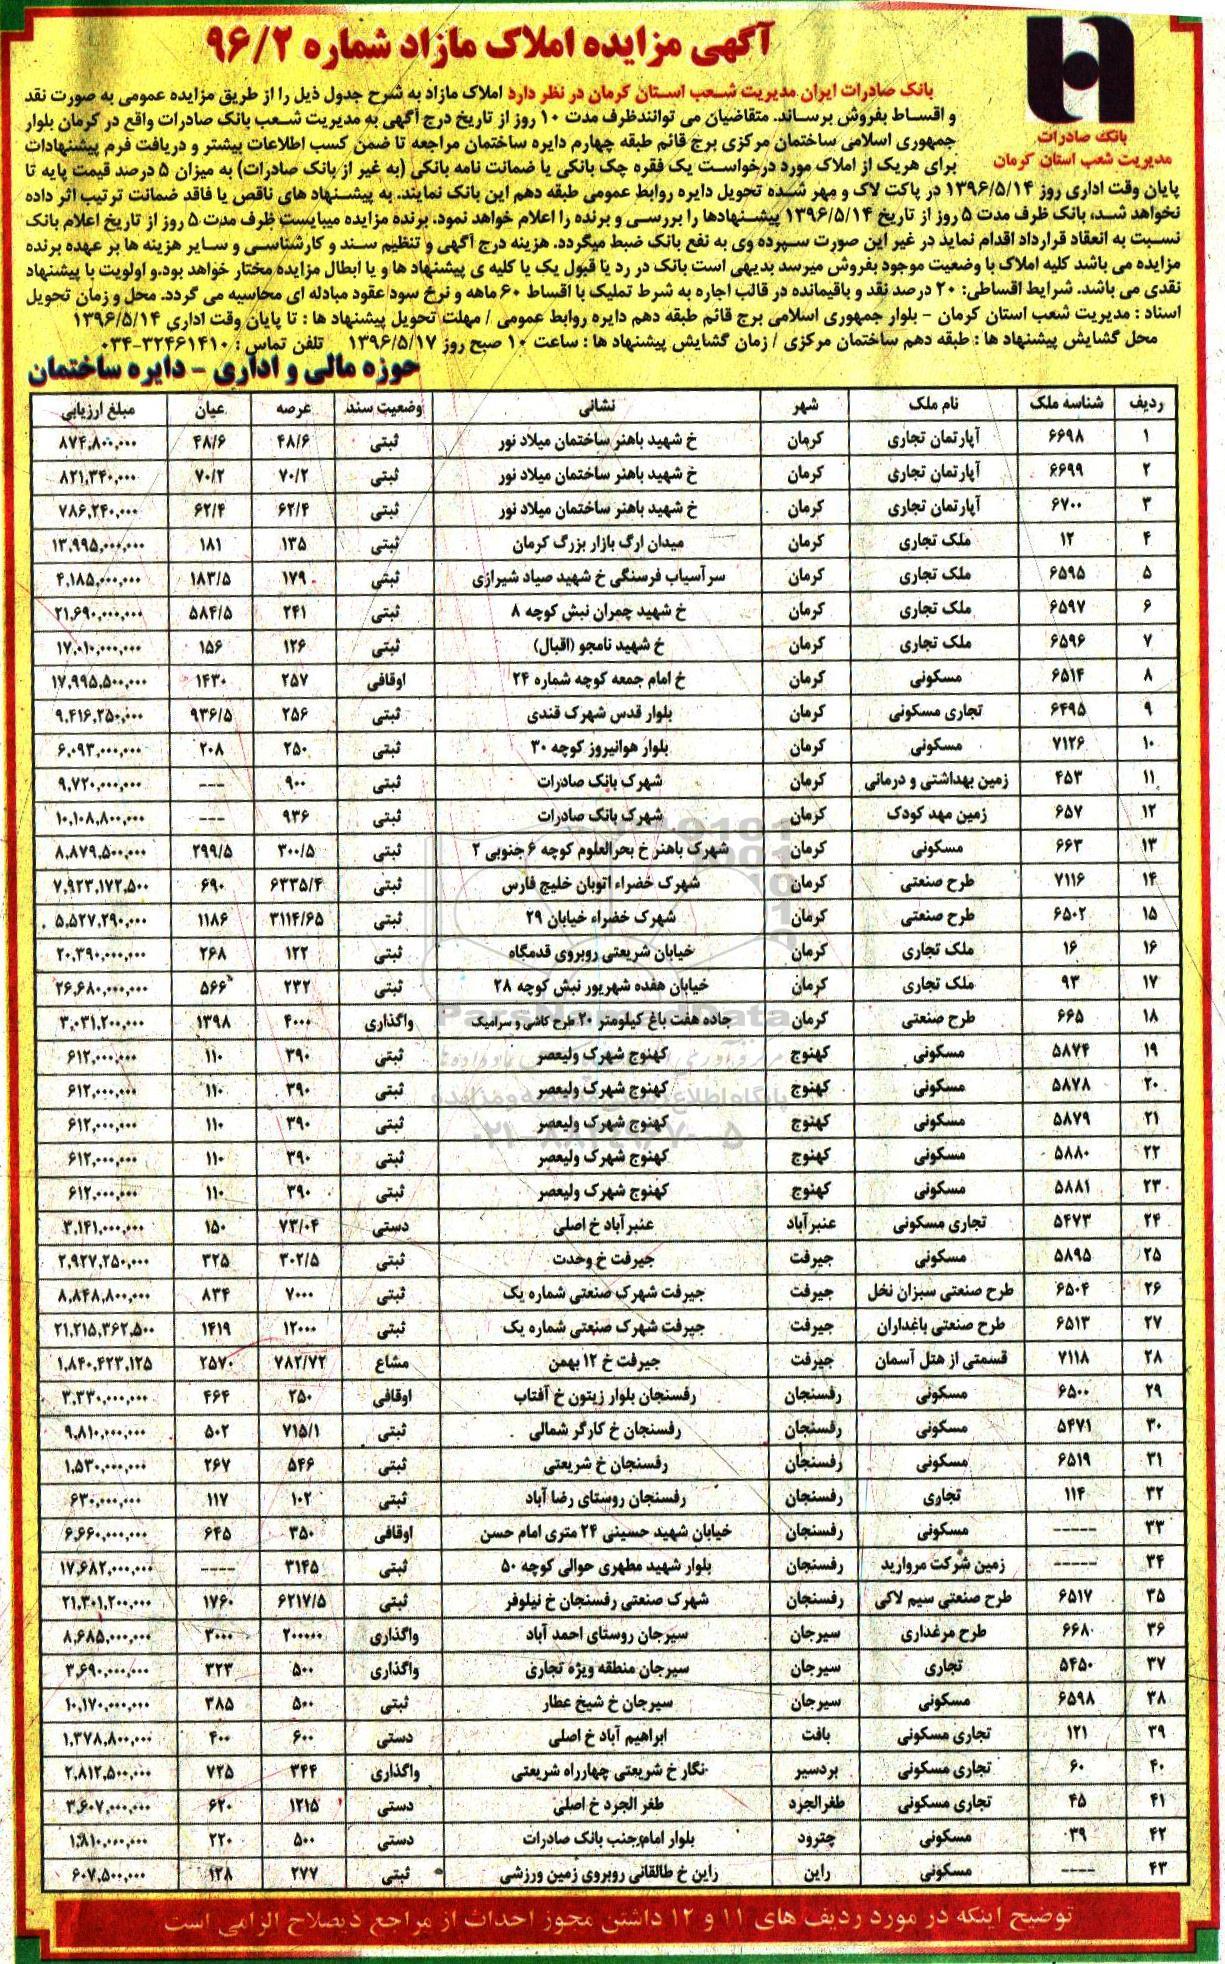 آگهی مزایده املاک مازاد شماره ۹۶/۲
بانک صادرات
مدیریت شعب استان کرمان
بانک صادرات ایران مدیریت شعب استان کرمان در نظر دارد املاک مازاد به شرح جدول ذیل را از طریق مزایده عمومی به صورت نقد
و اقساط بفروش برساند. متقاضیان می توانندظرف مدت ۱۰ روز از تاریخ درج آگهی به مدیریت شعب بانک صادرات واقع در کرمان بلوار
جمهوری اسلامی ساختمان مرکزی برج قائم طبقه چهارم دایره ساختمان مراجعه تا ضمن کسب اطلاعات بیشتر و دریافت فرم پیشنهادات
برای هریک از املاک مورد درخواست یک فقره چک بانکی یا ضمانت نامه بانکی (به غیر از بانک صادرات) به میزان ۵ درصد قیمت پایه تا
پایان وقت اداری روز ۱۳۹۶/۵/۱۴ در پاکت لاک و مهر شده تحویل دایره روابط عمومی طبقه دهم این بانک نمایند. به پیشنهاد های ناقص یا فاقد ضمانت ترتیب اثر داده
نخواهد شد، بانک ظرف مدت ۵ روز از تاریخ ۱۳۹۶/۵/۱۴ پیشنهادها را بررسی و برنده را اعلام خواهد نمود. برنده مزایده میبایست ظرف مدت ۵ روز از تاریخ اعلام بانک
نسبت به انعقاد قرارداد اقدام نماید در غیر این صورت سپرده وی به نفع بانک ضبط میگردد. هزینه درج آگهی و تنظیم سند و کارشناسی و سایر هزینه ها بر عهده برنده
مزایده می باشد کلیه املاک با وضعیت موجود بفروش میرسد بدیهی است بانک در رد یا قبول یک یا کلیه ی پیشنهاد ها و یا ابطال مزایده مختار خواهد بود.و اولویت با پیشنهاد
نقدی می باشد. شرایط اقساطی: ۲۰ درصد نقد و باقیمانده در قالب اجاره به شرط تملیک با اقساط ۶۰ ماهه و نرخ سود عقود مبادله ای محاسبه می گردد. محل و زمان تحویل
اسناد : مدیریت شعب استان کرمان - بلوار جمهوری اسلامی برج قائم طبقه دهم دایره روابط عمومی / مهلت تحویل پیشنهاد ها : تا پایان وقت اداری ۱۳۹۶/۵/۱۴
محل گشایش پیشنهاد ها : طبقه دهم ساختمان مرکزی / زمان گشایش پیشنهاد ها : ساعت ۱۰ صبح روز ۱۳۹۶/۵/۱۷ تلفن تماس : ۳۲۴۶۱۴۱۰-۰۳۴
حوزه مالی و اداری - دایره ساختمان
ردیف شناسه ملک نام ملک شهر نشانی وضعیت سند عرصه عیان مبلغ ارزیابی
۱ ۶۶۹۸ آپارتمان تجاری کرمان خ شهید باهنر ساختمان میلاد نور ثبتی ۴۸/۶ ۴۸/۶ ۸۷۴,۸۰۰,۰۰۰
۲ ۶۶۹۹ آپارتمان تجاری کرمان خ شهید باهنر ساختمان میلاد نور ثبتی ۷۰/۲ ۷۰/۲ ۸۲۱,۳۴۰,۰۰۰
۳ ۶۷۰۰ آپارتمان تجاری کرمان خ شهید باهنر ساختمان میلاد نور ثبتی ۶۲/۴ ۶۲/۴ ۷۸۶,۲۴۰,۰۰۰
۴ ۱۲ ملک تجاری کرمان میدان ارگ بازار بزرگ کرمان ثبتی ۱۳۵ ۱۸۱ ۱۳,۹۹۵,۰۰۰,۰۰۰
۵ ۶۵۹۵ ملک تجاری کرمان سرآسیاب فرسنگی خ شهید صیاد شیرازی ثبتی ۱۷۹ ۱۸۳/۵ ۴,۱۸۵,۰۰۰,۰۰۰
۶ ۶۵۹۷ ملک تجاری کرمان خ شهید چمران نبش کوچه ۸ ثبتی ۲۴۱ ۵۸۴/۵ ۲۱,۶۹۰,۰۰۰,۰۰۰
۷ ۶۵۹۶ ملک تجاری کرمان خ شهید نامجو (اقبال) ثبتی ۱۲۶ ۱۵۶ ۱۷,۰۱۰,۰۰۰,۰۰۰
۸ ۶۵۱۴ مسکونی کرمان خ امام جمعه کوچه شماره ۲۴ اوقافی ۲۵۷ ۱۴۳۰ ۱۷,۹۹۵,۵۰۰,۰۰۰
۹ ۶۴۹۵ تجاری مسکونی کرمان بلوار قدس شهرک قندی ثبتی ۲۵۶ ۹۳۶/۵ ۹,۴۱۶,۲۵۰,۰۰۰
۱۰ ۷۱۲۶ مسکونی کرمان بلوار هوانیروز کوچه ۳۰ ثبتی ۲۵۰ ۲۰۸ ۶,۰۹۳,۰۰۰,۰۰۰
۱۱ ۴۵۳ زمین بهداشتی و درمانی کرمان شهرک بانک صادرات ثبتی ۹۰۰ --- ۹,۷۲۰,۰۰۰,۰۰۰
۱۲ ۶۵۷ زمین مهد کودک کرمان شهرک بانک صادرات ثبتی ۹۳۶ --- ۱۰,۱۰۸,۸۰۰,۰۰۰
۱۳ ۶۶۳ مسکونی کرمان شهرک باهنر خ بحرالعلوم کوچه ۶ جنوبی ۲ ثبتی ۳۰۰/۵ ۲۹۹/۵ ۸,۸۷۹,۵۰۰,۰۰۰
۱۴ ۷۱۱۶ طرح صنعتی کرمان شهرک خضراء اتوبان خلیج فارس ثبتی ۶۳۳۵/۴ ۶۹۰ ۷,۹۲۳,۱۷۲,۵۰۰
۱۵ ۶۵۰۲ طرح صنعتی کرمان شهرک خضراء خیابان ۲۹ ثبتی ۳۱۱۴/۶۵ ۱۱۸۶ ۵,۵۲۷,۲۹۰,۰۰۰
۱۶ ۱۶ ملک تجاری کرمان خیابان شریعتی روبروی قدمگاه ثبتی ۱۲۲ ۲۶۸ ۲۰,۳۹۰,۰۰۰,۰۰۰
۱۷ ۹۳ ملک تجاری کرمان خیابان هفده شهریور نبش کوچه ۲۸ ثبتی ۲۳۲ ۵۶۶ ۲۶,۶۸۰,۰۰۰,۰۰۰
۱۸ ۶۶۵ طرح صنعتی کرمان جاده هفت باغ کیلومتر ۲۰ طرح کاشی و سرامیک واگذاری ۴۰۰۰ ۱۳۹۸ ۳,۰۳۱,۲۰۰,۰۰۰
۱۹ ۵۸۷۴ مسکونی کهنوج کهنوج شهرک ولیعصر ثبتی ۳۹۰ ۱۱۰ ۶۱۲,۰۰۰,۰۰۰
۲۰ ۵۸۷۸ مسکونی کهنوج کهنوج شهرک ولیعصر ثبتی ۳۹۰ ۱۱۰ ۶۱۲,۰۰۰,۰۰۰
۲۱ ۵۸۷۹ مسکونی کهنوج کهنوج شهرک ولیعصر ثبتی ۳۹۰ ۱۱۰ ۶۱۲,۰۰۰,۰۰۰
۲۲ ۵۸۸۰ مسکونی کهنوج کهنوج شهرک ولیعصر ثبتی ۳۹۰ ۱۱۰ ۶۱۲,۰۰۰,۰۰۰
۲۳ ۵۸۸۱ مسکونی کهنوج کهنوج شهرک ولیعصر ثبتی ۳۹۰ ۱۱۰ ۶۱۲,۰۰۰,۰۰۰
۲۴ ۵۴۷۳ تجاری مسکونی عنبرآباد عنبرآباد خ اصلی دستی ۷۳/۰۴ ۱۵۰ ۳,۱۴۱,۰۰۰,۰۰۰
۲۵ ۵۸۹۵ مسکونی جیرفت جیرفت خ وحدت ثبتی ۳۰۲/۵ ۳۲۵ ۲,۹۲۷,۲۵۰,۰۰۰
۲۶ ۶۵۰۴ طرح صنعتی سبزان نخل جیرفت جیرفت شهرک صنعتی شماره یک ثبتی ۷۰۰۰ ۸۳۴ ۸,۸۴۸,۸۰۰,۰۰۰
۲۷ ۶۵۱۳ طرح صنعتی باغداران جیرفت جیرفت شهرک صنعتی شماره یک ثبتی ۱۲۰۰۰ ۱۴۱۹ ۲۱,۲۱۵,۳۶۲,۵۰۰
۲۸ ۷۱۱۸ قسمتی از هتل آسمان جیرفت جیرفت خ ۱۲ بهمن مشاع ۷۸۲/۷۲ ۲۵۷۰ ۱,۸۴۰,۴۲۳,۱۲۵
۲۹ ۶۵۰۰ مسکونی رفسنجان رفسنجان بلوار زیتون خ آفتاب اوقافی ۲۵۰ ۴۶۴ ۳,۳۳۰,۰۰۰,۰۰۰
۳۰ ۵۴۷۱ مسکونی رفسنجان رفسنجان خ کارگر شمالی ثبتی ۷۱۵/۱ ۵۰۲ ۹,۸۱۰,۰۰۰,۰۰۰
۳۱ ۶۵۱۹ مسکونی رفسنجان رفسنجان خ شریعتی ثبتی ۵۴۶ ۲۶۷ ۱,۵۳۰,۰۰۰,۰۰۰
۳۲ ۱۱۴ تجاری رفسنجان رفسنجان روستای رضا آباد ثبتی ۱۰۲ ۱۱۷ ۶۳۰,۰۰۰,۰۰۰
۳۳ ----- مسکونی رفسنجان خیابان شهید حسینی ۲۴ متری امام حسن اوقافی ۳۵۰ ۶۴۵ ۶,۶۶۰,۰۰۰,۰۰۰
۳۴ ----- زمین شرکت مروارید رفسنجان بلوار شهید مطهری حوالی کوچه ۵۰ ثبتی ۳۱۴۵ ---- ۱۷,۶۸۲,۰۰۰,۰۰۰
۳۵ ۶۵۱۷ طرح صنعتی سیم لاکی رفسنجان شهرک صنعتی رفسنجان خ نیلوفر ثبتی ۶۲۱۷/۵ ۱۷۶۰ ۲۱,۳۰۱,۲۰۰,۰۰۰
۳۶ ۶۶۸ طرح مرغداری سیرجان سیرجان روستای احمد آباد واگذاری ۲۰۰۰۰۰ ۳۰۰۰ ۸,۶۸۵,۰۰۰,۰۰۰
۳۷ ۵۴۵۰ تجاری سیرجان سیرجان منطقه ویژه تجاری واگذاری ۵۰۰ ۳۲۳ ۳,۶۹۰,۰۰۰,۰۰۰
۳۸ ۶۵۹۸ مسکونی سیرجان سیرجان خ شیخ عطار ثبتی ۵۰۰ ۳۸۵ ۱۰,۱۷۰,۰۰۰,۰۰۰
۳۹ ۱۲۱ تجاری مسکونی بافت ابراهیم آباد خ اصلی دستی ۶۰۰ ۴۰۰ ۱,۳۷۸,۸۰۰,۰۰۰
۴۰ ۶۰ تجاری مسکونی بردسیر نگار خ شریعتی چهارراه شریعتی واگذاری ۳۴۴ ۷۲۵ ۲,۸۱۲,۵۰۰,۰۰۰
۴۱ ۴۵ تجاری مسکونی طغرالجرد طغر الجرد خ اصلی دستی ۱۲۱۵ ۶۲۰ ۳,۶۰۷,۰۰۰,۰۰۰
۴۲ ۳۹ مسکونی چترود بلوار امام جنب بانک صادرات دستی ۵۰۰ ۲۲۰ ۱,۸۱۰,۰۰۰,۰۰۰
۴۳ ---- مسکونی راین راین خ طالقانی روبروی زمین ورزشی ثبتی ۲۷۷ ۱۲۸ ۶۰۷,۵۰۰,۰۰۰
توضیح اینکه در مورد ردیف های ۱۱ و ۱۲ داشتن مجوز احداث از مراجع ذیصلاح الزامی است